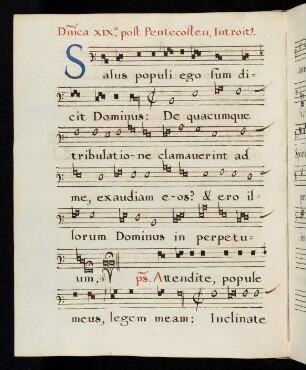 Dnĩca XIX.ª post Pentecosten, Introitꝰ.
Salus populi ego sum di-
cit Dominus: De quacumque
tribulatio-ne clamauerint ad
me, exaudiam e-os? & ero il-
lorum Dominus in perpetu-
um, ps. Attendite, popule
meus, legem meam: Inclinate